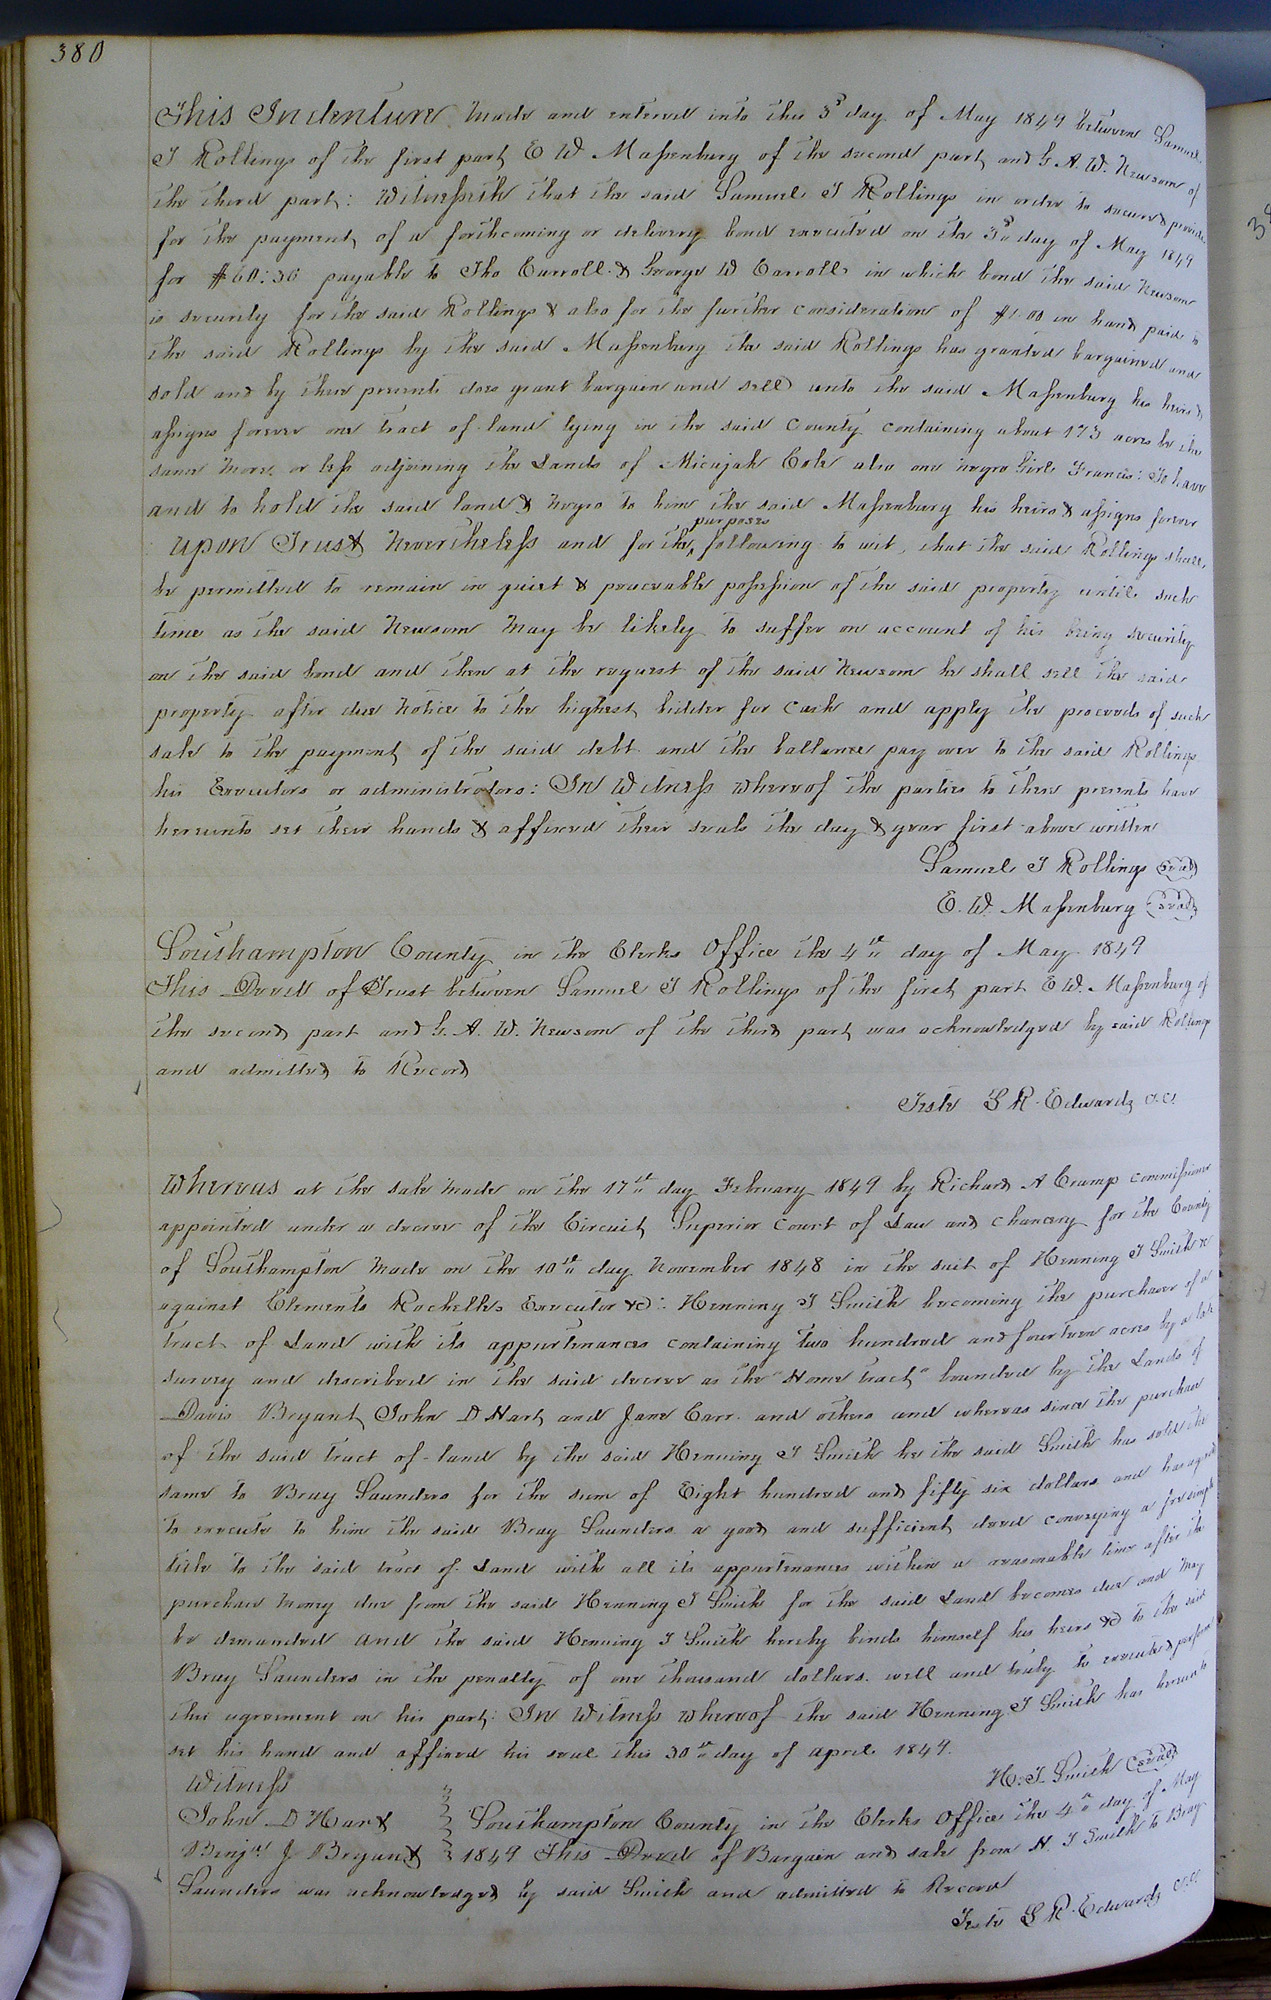 380
This Indenture made and entered into this 3d day of May 1849 between Samuel
T Rollings of the first part E W Massenburg of the second part and G. A. W. Newsom of
the third part: Witnesseth that the said Samuel T Rollings in order to secure & provide
for the payment of a forthcoming or delivery bond executed on the 3d day of May 1849
for $60:36 payable to Tho Carroll & George W Carroll in which bond the said Newsom
is security for the said Rollings & also for the further consideration of $1.00 in hand paid to
the said Rollings by the said Massenburg the said Rollings has granted bargained and
sold and by these presents does grant bargain and sell unto the said Massenburg his heirs &
assigns forever one tract of land lying in the said County containing about 173 acres be the
same more or less adjoining the Lands of Micajah Cole also one negro Girl Francis: To have
and to hold the said land & negro to him the said Massenburg his heirs & assigns forever
upon Trust Nevertheless and for the purposes following to wit, that the said Rollings shall
be permitted to remain in quiet & peaceable possession of the said property until such
time as the said Newsom may be likely to suffer on account of his being security
on the said bond and then at the request of the said Newsom he shall sell the said
property after due notice to the highest bidder for cash and apply the proceeds of such
sale to the payment of the said debt and the ballance pay over to the said Rollings
his Executors or administrators: In Witness whereof the parties to these presents have
hereunto set their hands & affixed their seals the day & year first above written
Samuel T Rollings (seal)
E. W. Massenburg (seal)
Southampton County in the Clerks Office the 4th day of May 1849
This Deed of Trust between Samuel T Rollings of the first part E W. Massenburg of
the second part and G. A. W. Newsom of the third part was acknowledged by said Rollings
and admitted to Record
Teste L R. Edwards C.C.
Whereas at the sale made on the 17th day February 1849 by Richard A Cramp commissioner
appointed under a decree of the Circuit Superior Court of Law and chancery for the County
of Southampton made on the 10th day November 1848 in the suit of Henning T Smith &c
against Clements Rochelles Executor &c: Henning T Smith becoming the purchaser of a
tract of Land with its appurtenances containing two hundred and fourteen acres by a late
survey and described in the said decree as the "Home tract" bounded by the Lands of
Davis Bryant John D Hart and Jane Carr and others and whereas since the purchase
of the said tract of land by the said Henning T Smith he the said Smith has sold the
same to Bray Saunders for the sum of Eight hundred and fifty six dollars and has agreed
to execute to him the said Bray Saunders a good and sufficient deed conveying a fee simple
title to the said tract of Land with all its appurtenances within a reasonable time after the
purchase money due from the said Henning T Smith for the said Land becomes due and may
be demanded and the said Henning T Smith hereby binds himself his heirs &c to the said
Bray Saunders in the penalty of one thousand dollars well and truly to execute & perform
this agreement on his part: In Witness whereof the said Henning T Smith has hereunto
set his hand and affixed his seal this 30th day of april 1849.
H. T. Smith (seal)
Witness
John D Hart } Southampton County in the Clerks Office the 4th day of May
Benjn J Bryant } 1849 This Deed of Bargain and sale from H. T Smith to Bray
Saunders was acknowledged by said Smith and admitted to Record
Teste L R. Edwards C.C.